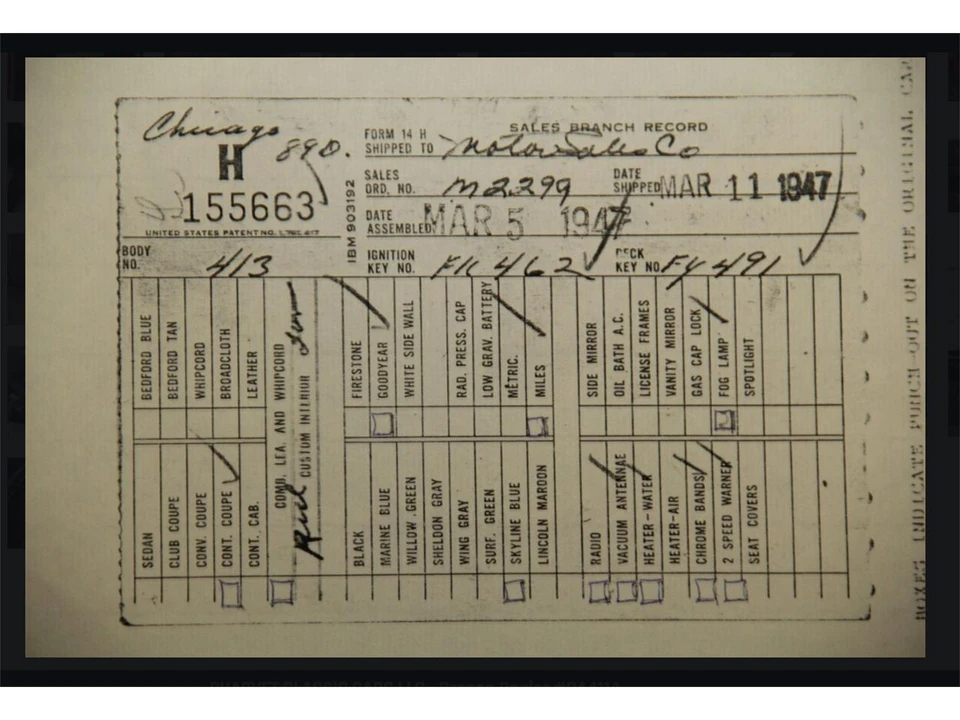 Chicago
890.
SALES BRANCH RECORD
FORM 14 H
SHIPPED TO Motor Sales Co
H
155663
UNITED STATES PATENT NO. 1,762,417
IBM 903192
SALES ORD. NO. M2299
DATE SHIPPED MAR 11 1947
DATE ASSEMBLED MAR 5 1947
BODY NO. 413
IGNITION KEY NO. FK 462
DECK KEY NO. FY 491
BEDFORD BLUE
BEDFORD TAN
WHIPCORD
BROADCLOTH
LEATHER
COMB. LEA. AND WHIPCORD
CUSTOM INTERIOR
Red
FIRESTONE
GOODYEAR
WHITE SIDE WALL
RAD. PRESS. CAP
LOW GRAV. BATTERY
METRIC.
MILES
SIDE MIRROR
OIL BATH A.C.
LICENSE FRAMES
VANITY MIRROR
GAS CAP LOCK
FOG LAMP
SPOTLIGHT
SEDAN
CLUB COUPE
CONV. COUPE
CONT. COUPE
CONT. CAB.
BLACK
MARINE BLUE
WILLOW GREEN
SHELDON GRAY
WING GRAY
SURF. GREEN
SKYLINE BLUE
LINCOLN MAROON
RADIO
VACUUM ANTENNAE
HEATER-WATER
HEATER-AIR
CHROME BANDS
2 SPEED WARNER
SEAT COVERS
BOXES INDICATE PUNCH-OUT ON THE ORIGINAL CAR